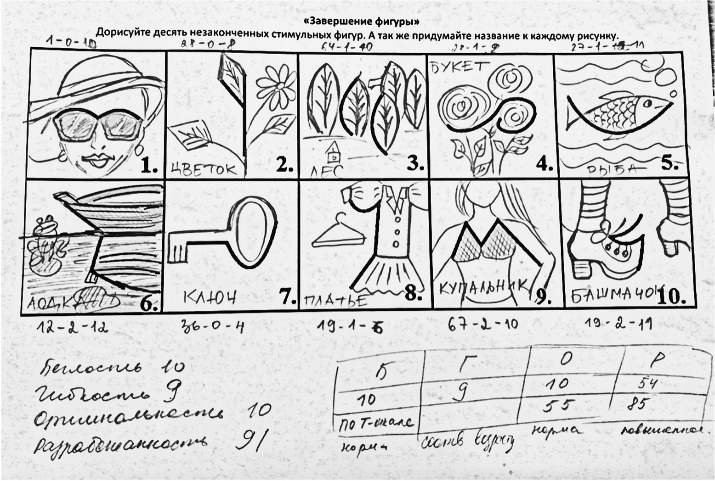 «Завершение фигуры»
Дорисуйте десять незаконченных стимульных фигур. А так же придумайте название к каждому рисунку.
1-0-10 28-0-8 64-1-10 28-1-9 27-1-11
1. ЦВЕТОК 2. ЛЕС 3. БУКЕТ 4. РЫБА 5.
ЛОДКА 6. КЛЮЧ 7. ПЛАТЬЕ 8. КУПАЛЬНИК 9. БАШМАЧОК 10.
12-2-12 36-0-4 19-1-6 67-2-10 19-2-11
Беглость 10
Гибкость 9
Оригинальность 10
Разработанность 91
Б Г О Р
10 9 10 54
55 85
ПО Т-шкале
норма соотв норма